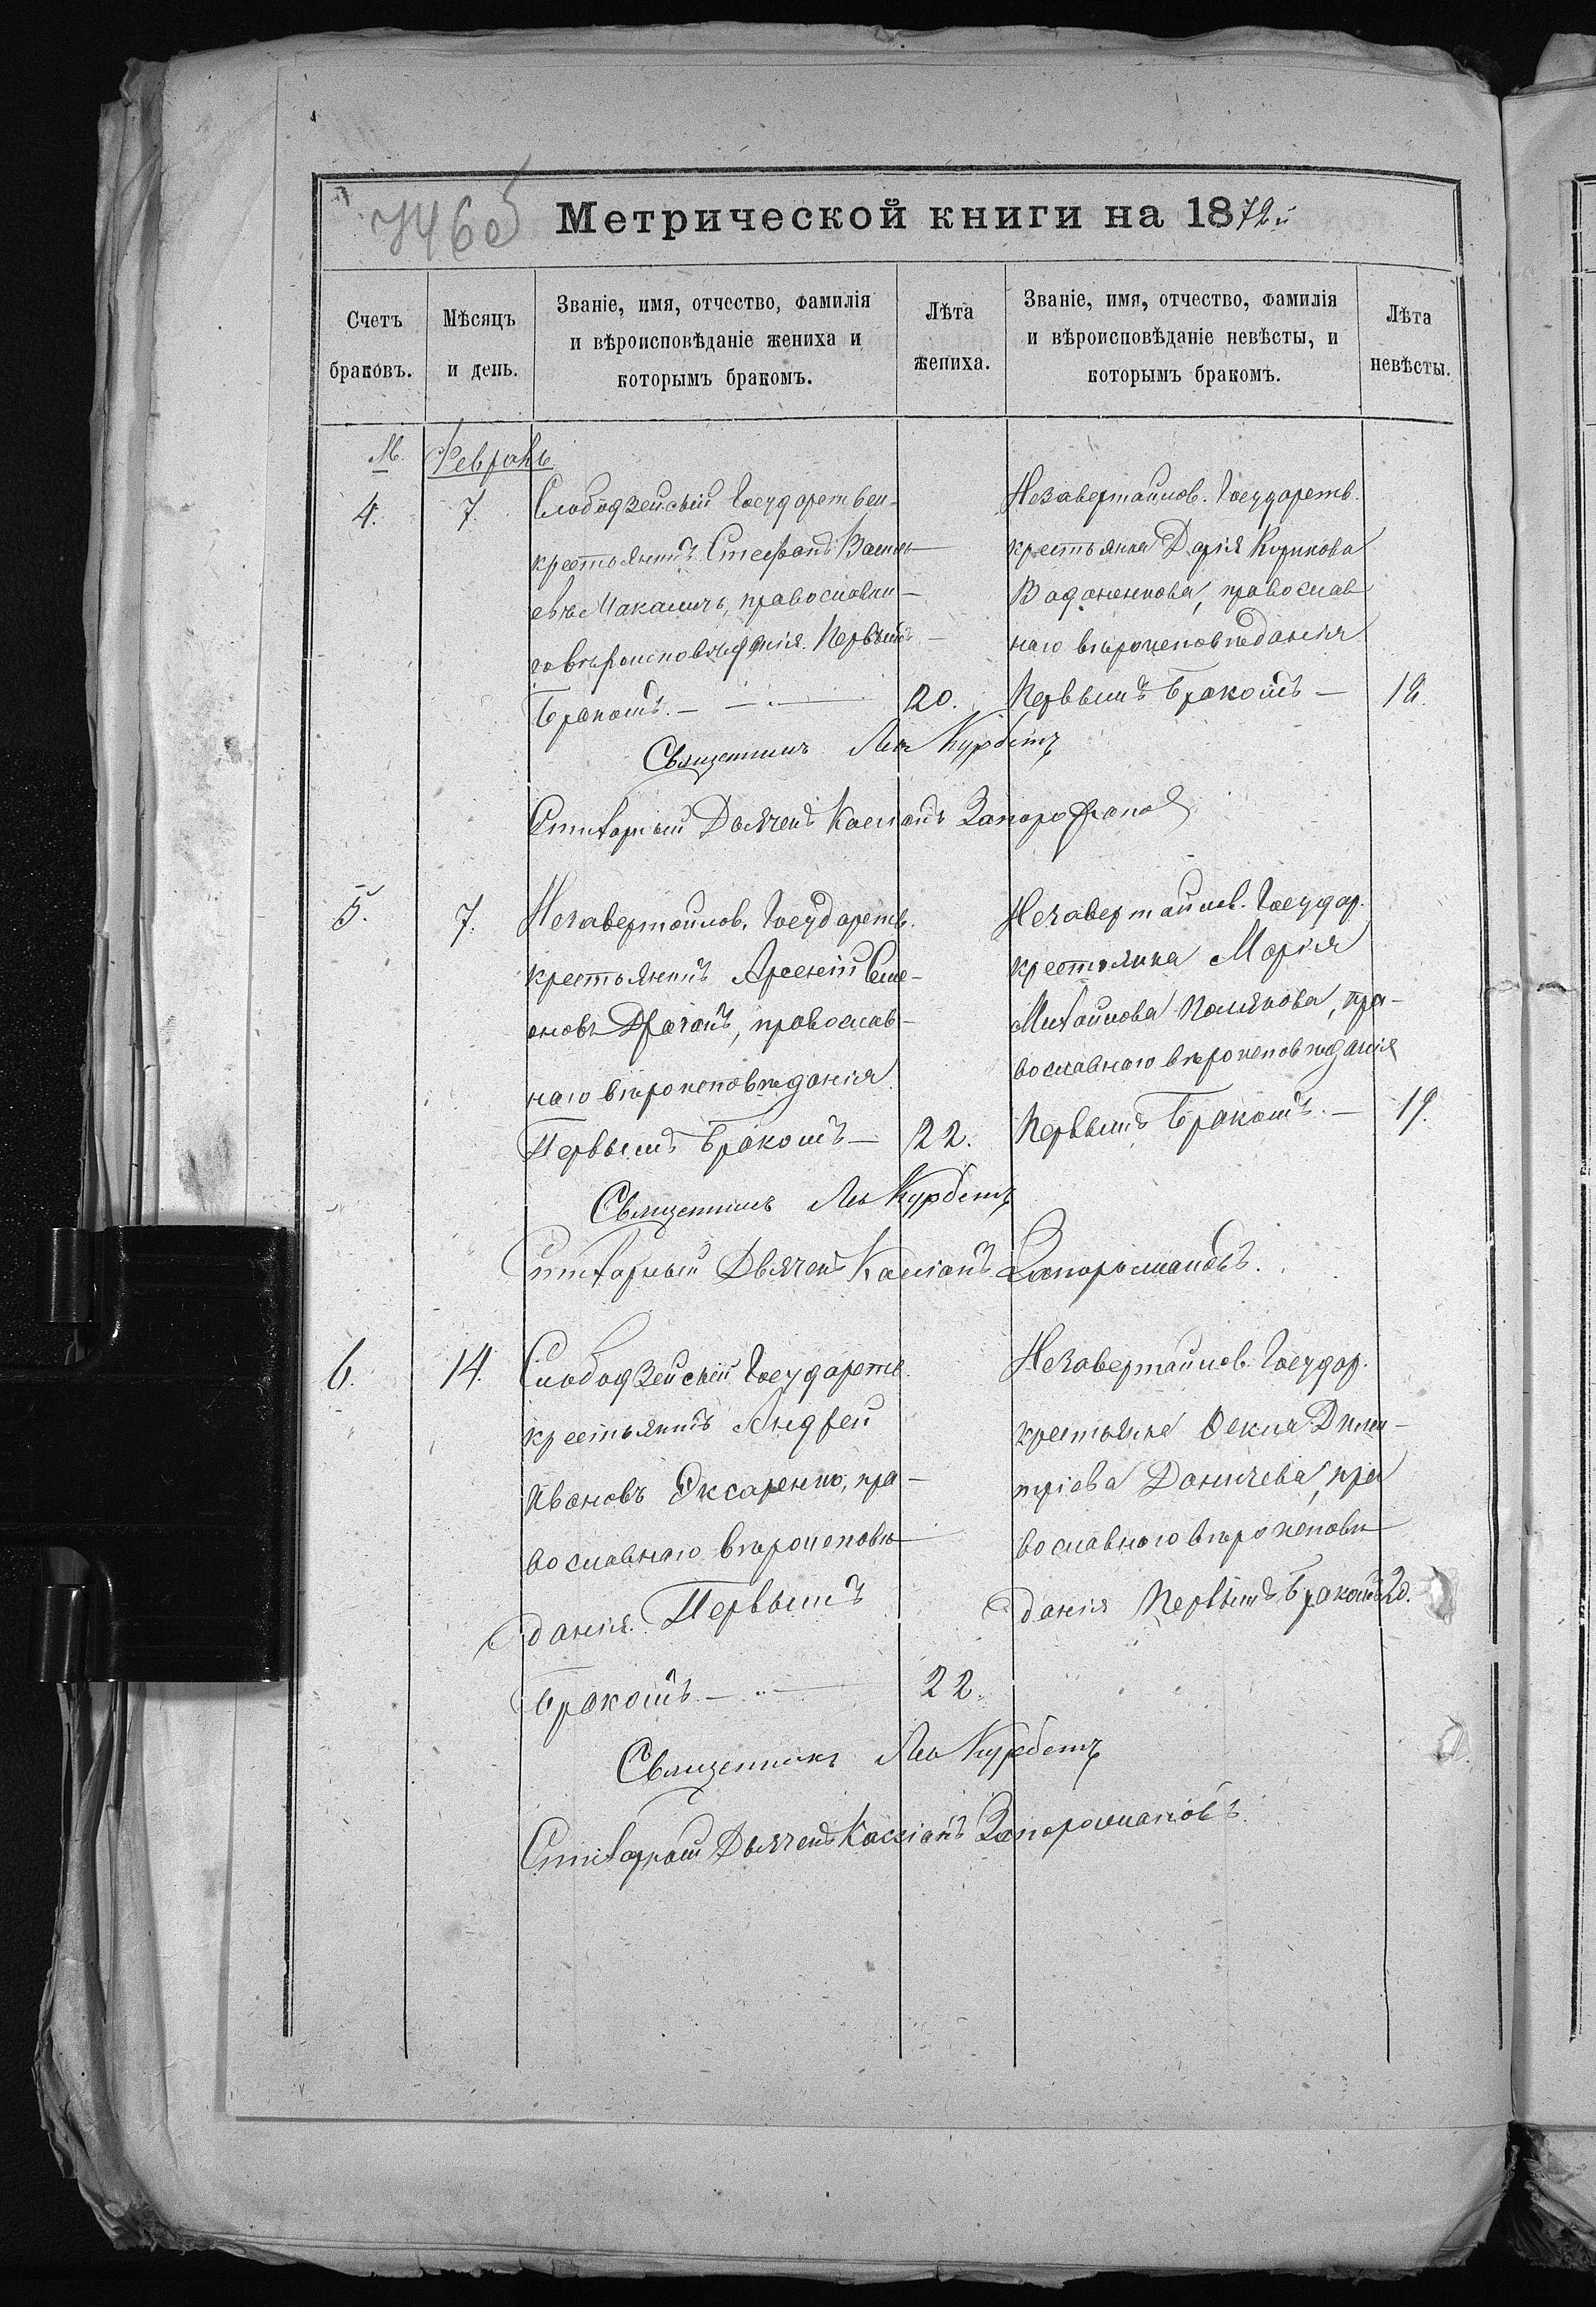 746об
Метрической книги на 1872й
Счетъ браковъ.
Мѣсяцъ и день.
Званіе, имя, отчество, фамилія
и вѣроисповѣданіе жениха и
которымъ бракомъ.
Лѣта жениха.
Званіе, имя, отчество, фамилія
и вѣроисповѣданіе невѣсты, и
которымъ бракомъ.
Лѣта невѣсты.
М. Февраль
4. 7.
Слободзейскій Государствен-
крестьянинъ Стефанъ Васил-
евъ Макаличъ, православна-
го вѣроисповѣданія. Первымъ
бракомъ. — 20.
Незавертайлов. Государств.
крестьянка Дарія Кирикова
православ
наго вѣроисповѣданія
Первымъ бракомъ —
Священникъ Курбетъ
Дьячекъ Кассіанъ
5. 7.
Незавертайлов. Государств.
крестьянинъ Арсеній Симе-
оновъ Драганъ, православ-
наго вѣроисповѣданія.
Первымъ бракомъ — 22.
Незавертайлов. Государ.
крестьянка Марія
Михайлова Полякова, пра-
вославнаго вѣроисповѣданія
Первымъ бракомъ. — 19.
Священникъ Курбетъ
Дьячекъ Кассіанъ Запоромановъ.
6. 14.
Слободзейскій Государств.
крестьянинъ Андрей
Ивановъ Оксаренко, пра-
вославнаго вѣроисповѣ-
данія. Первымъ
бракомъ. — 22.
Незавертайлов. Государ.
крестьянка Ѳекла Дими-
тріева Даничева, пра
вославнаго вѣроисповѣ-
данія Первымъ бракомъ 20.
Священникъ Курбетъ
Дьячекъ Кассіанъ Запоромановъ.